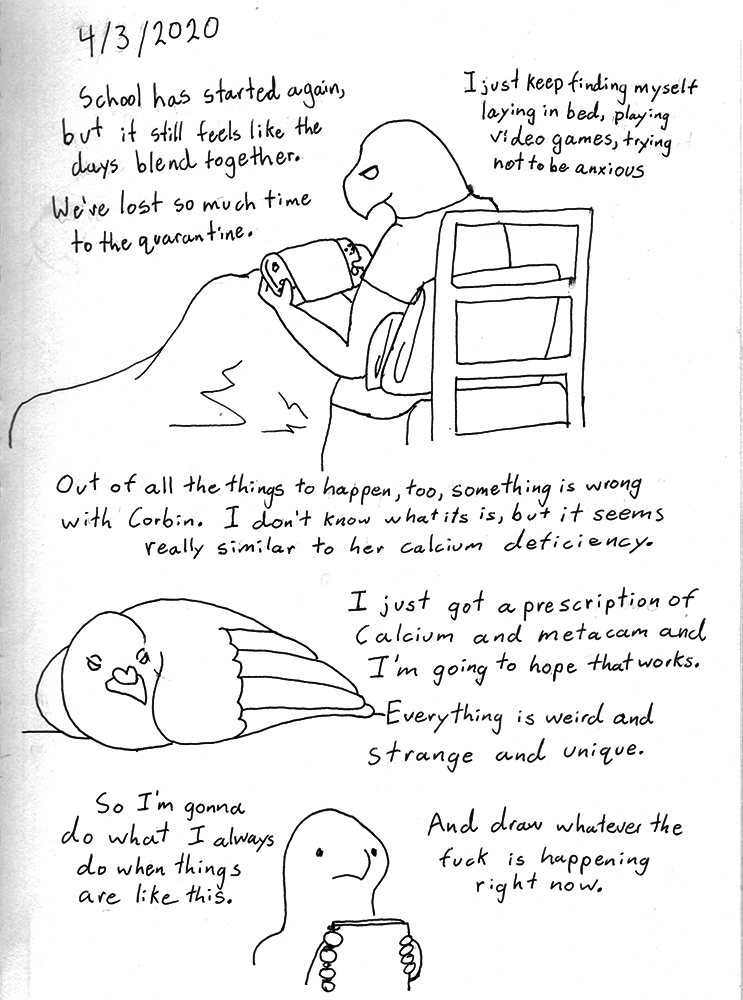 4/3/2020
School has started again,
but it still feels like the
days blend together.
We've lost so much time
to the quarantine.
I just keep finding myself
laying in bed, playing
video games, trying
not to be anxious
Out of all the things to happen, too, something is wrong
with Corbin. I don't know what its is, but it seems
really similar to her calcium deficiency.
I just got a prescription of
Calcium and metacam and
I'm going to hope that works.
Everything is weird and
strange and unique.
So I'm gonna
do what I always
do when things
are like this.
And draw whatever the
fuck is happening
right now.